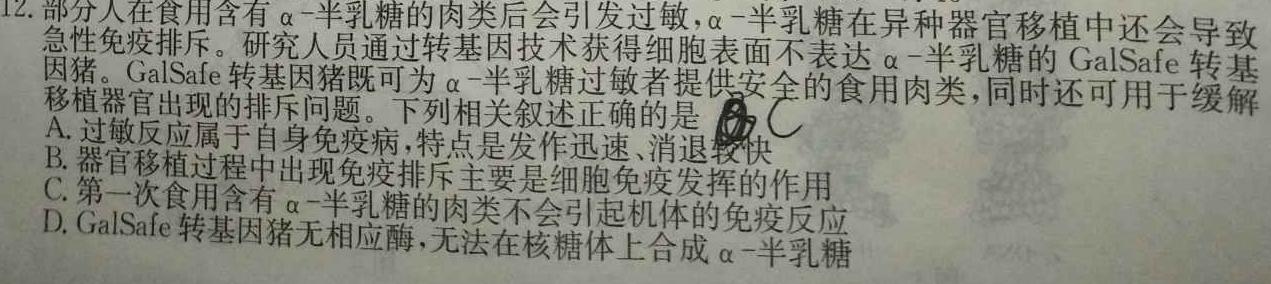 12. 部分人在食用含有α-半乳糖的肉类后会引发过敏,α-半乳糖在异种器官移植中还会导致
急性免疫排斥。研究人员通过转基因技术获得细胞表面不表达α-半乳糖的GalSafe转基
因猪。GalSafe转基因猪既可为α-半乳糖过敏者提供安全的食用肉类,同时还可用于缓解
移植器官出现的排斥问题。下列相关叙述正确的是 C
A. 过敏反应属于自身免疫病,特点是发作迅速、消退较快
B. 器官移植过程中出现免疫排斥主要是细胞免疫发挥的作用
C. 第一次食用含有α-半乳糖的肉类不会引起机体的免疫反应
D. GalSafe转基因猪无相应酶,无法在核糖体上合成α-半乳糖